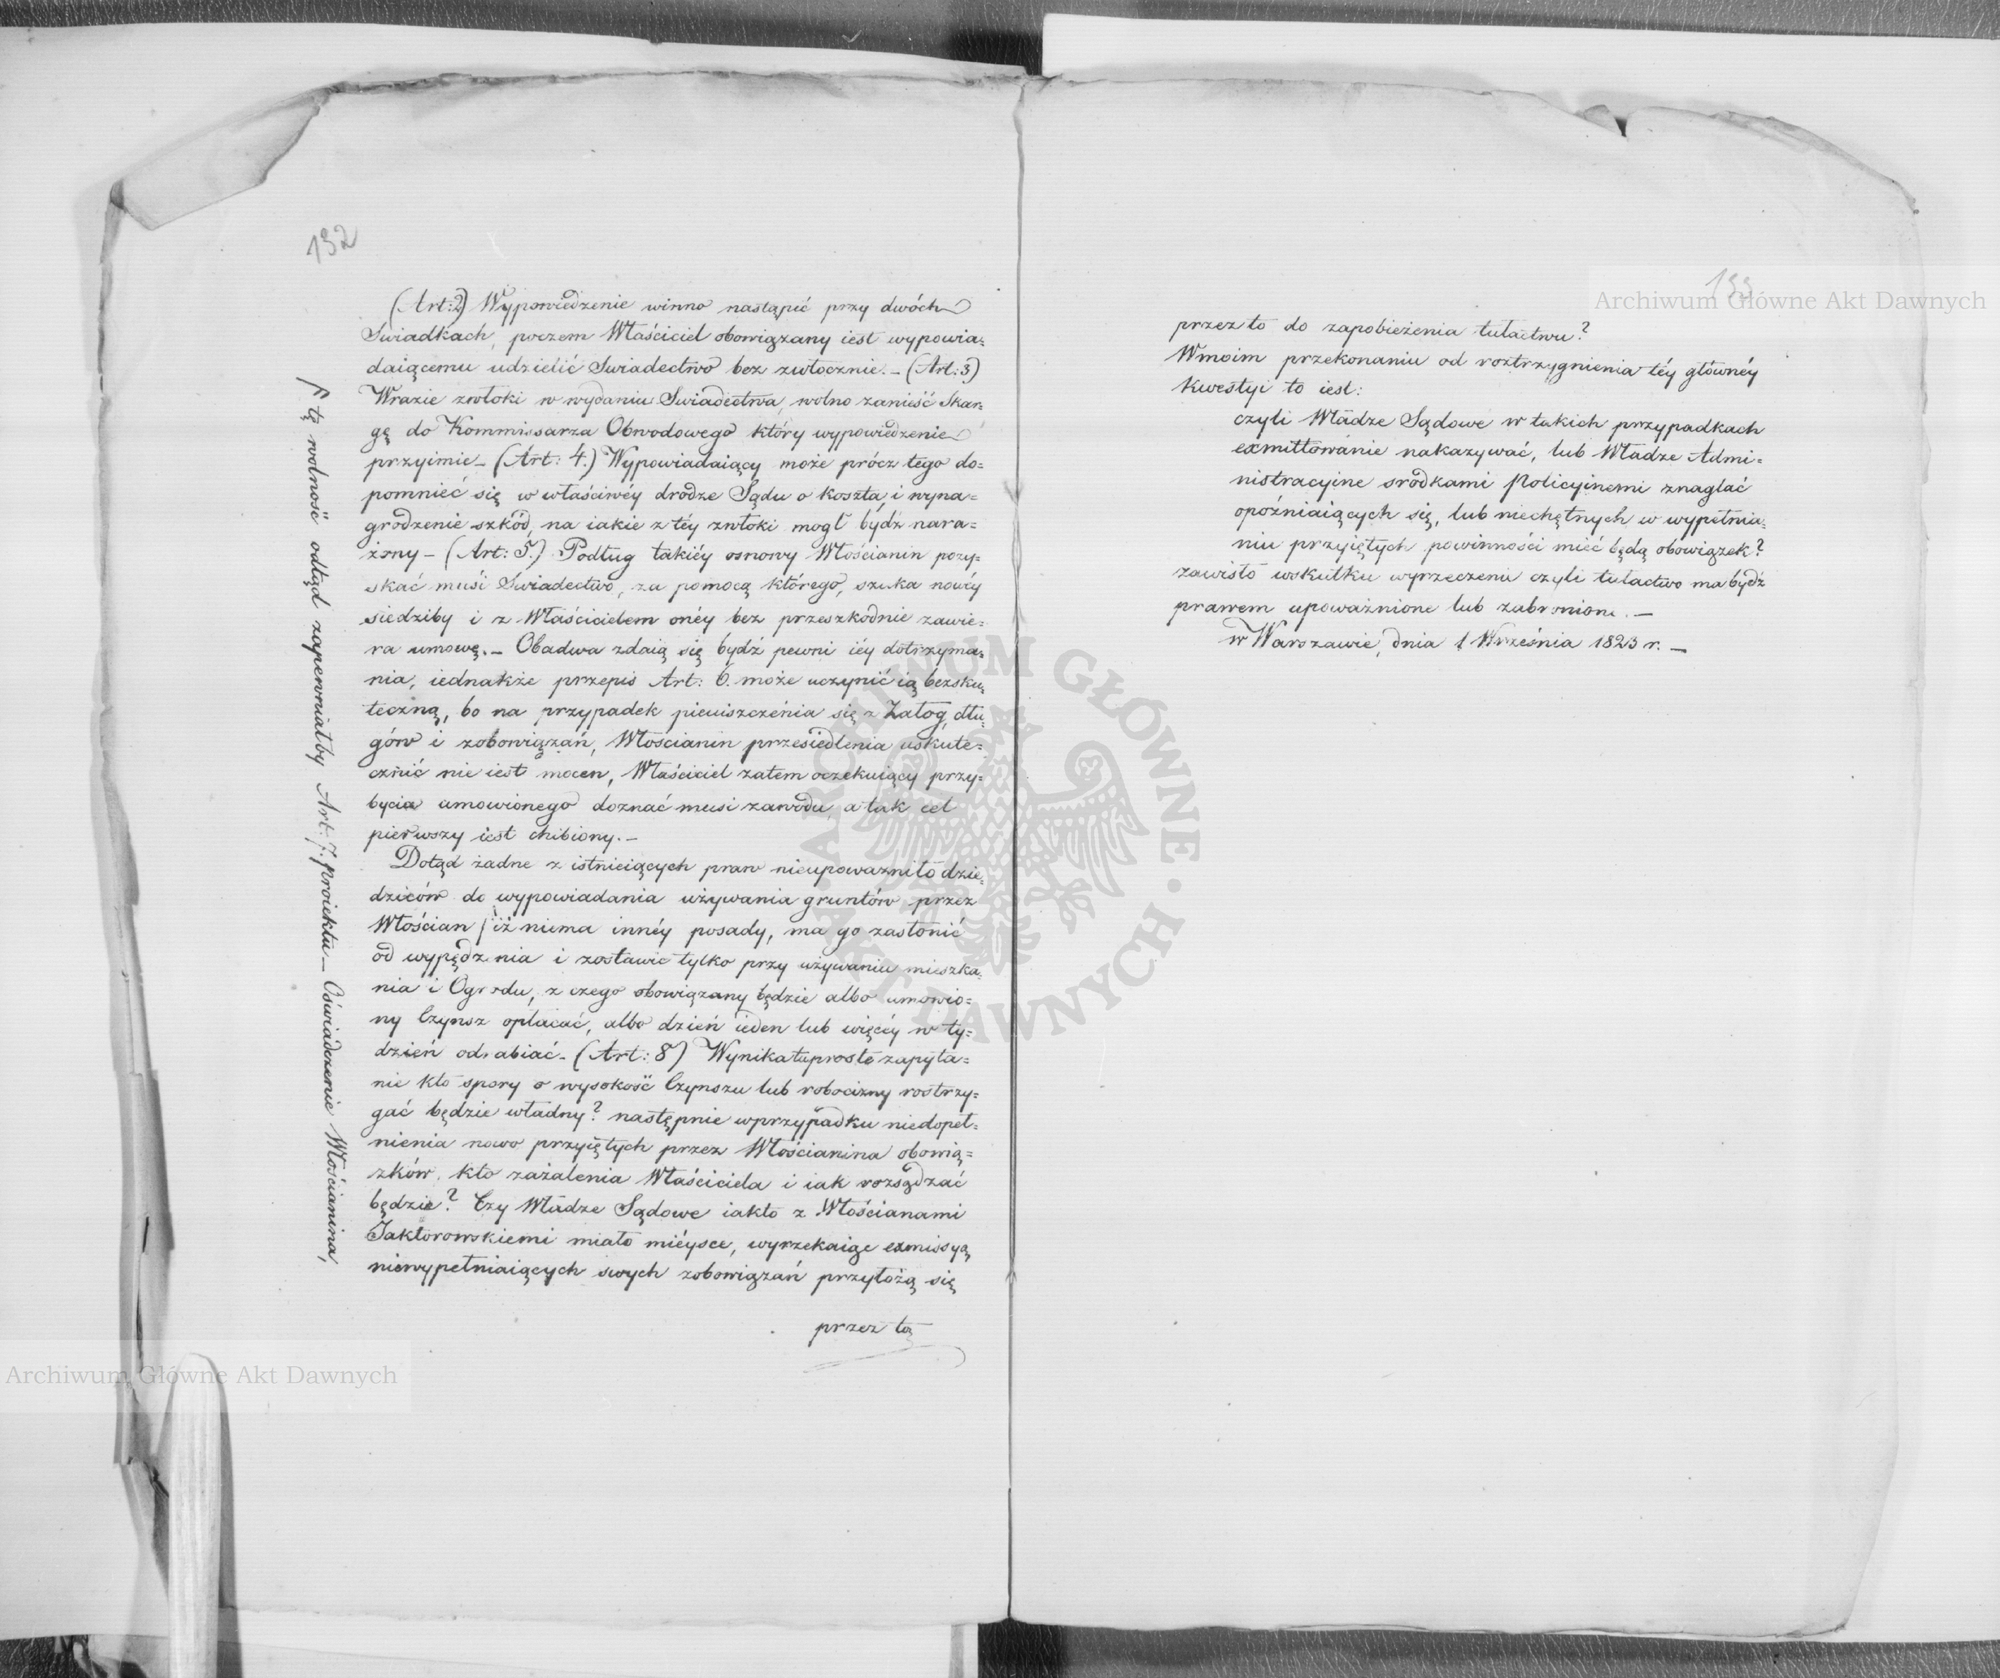 132
(Art: 2) Wypowiedzenie winno nastąpić przy dwóch
Swiadkach, poczem Właściciel obowiązany iest wypowia=
daiącemu udzielić Swiadectwo bez zwłocznie. – (Art: 3)
Wrazie zwłoki w wydaniu Swiadectwa, wolno zanieść Skar=
gę do Kommissarza Obwodowego który wypowiedzenie
przyimie – (Art: 4.) Wypowiadaiący może prócz tego do=
pomnieć się w właściwéy drodze Sądu o koszta i wyna=
grodzenie szkód, na iakie z téy zwłoki mogł bydź nara=
żony – (Art: 5.) Podług takiéy osnowy Włościanin pozy=
skać musi Swiadectwo, za pomocą którego, szuka nowéy
siedziby i z Właścicielem onéy bez przeszkodnie zawie=
ra umowę. – Obadwa zdaią się bydź pewni iéy dotrzyma=
nia, iednakże przepis Art: 6. może uczynić ią bezsku=
teczną, bo na przypadek nieuiszczenia się z Załog, dłu=
gów i zobowiązań, Włościanin przesiedlenia uskute=
cznić nie iest mocen, Właściciel zatem oczekuiący przy=
bycia umowionego doznać musi zawodu, a tak cel
pierwszy iest chibiony. –
Dotąd żadne z istnieiących praw nieupoważniło dzie=
dziców do wypowiadania używania gruntów przez
Włościan / iż niema innéy posady, ma go zasłonić
od wypędznia i zostawic tylko przy używaniu mieszka=
nia i Ogrodu, z czego obowiązany będzie albo umowio=
ny Czynsz opłacać, albo dzień ieden lub więcéy w ty=
dzień odrabiać – (Art: 8) Wynika tu proste zapyta=
nie kto spory o wysokość Czynszu lub robocizny rostrzy=
gać będzie władny? następnie wprzypadku niedopeł=
nienia nowo przyiętych przez Włościanina obowią=
zków, kto zażalenia Właściciela i iak rozsądzać
będzie? Czy Władze Sądowe iakto z Włościanami
Jaktorowskiemi miało mieysce, wyrzekaiąc exmissyą
niewypełniaiących swych zobowiązań przyłożą się
przez to
/ tę wolność odtąd zapewniałby Art: 7. proiektu – Oświadczenie Włościanina,
133
przez to do zapobieżenia tułactwu?
Wmoim przekonaniu od roztrzygnienia téy głównéy
kwestyi to iest:
czyli Władze Sądowe w takich przypadkach
exmittowanie nakazywać, lub Władze Admi=
nistracyine srodkami Policyinemi znaglać
opóźniaiących się, lub niechętnych w wypełnia=
niu przyiętych powinności mieć będą obowiązek?
zawisło wskutku wyrzeczenie czyli tułactwo ma bydź
prawem upoważnione lub zabronione. –
w Warszawie, dnia 1 Września 1823 r. –
Archiwum Główne Akt Dawnych
Archiwum Główne Akt Dawnych
ARCHIWUM GŁÓWNE · AKT DAWNYCH ·